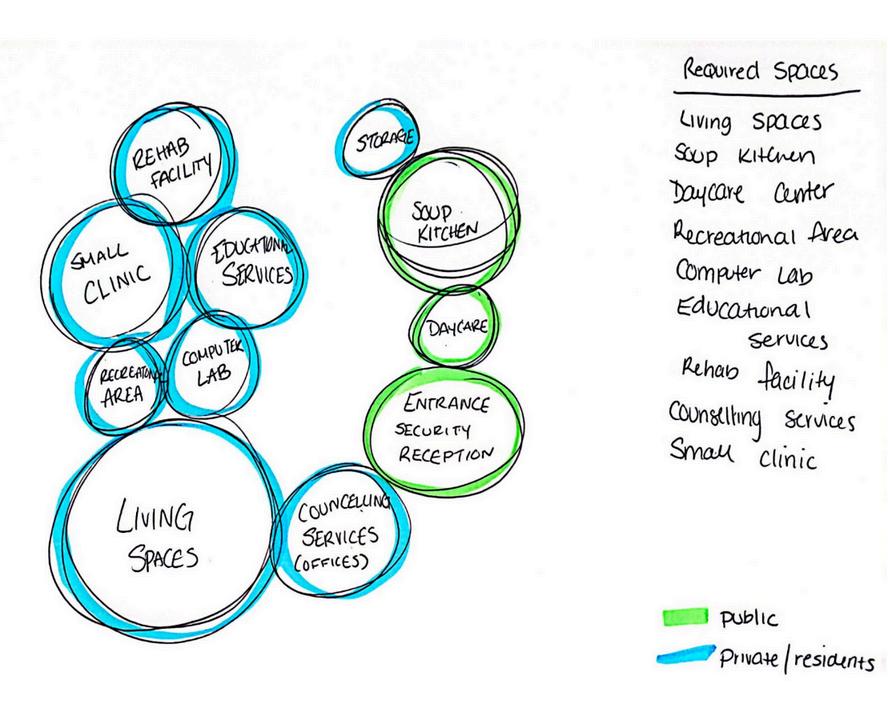 REHAB
FACILITY
SMALL
CLINIC
EDUCATIONAL
SERVICES
RECREATIONAL
AREA
COMPUTER
LAB
LIVING
SPACES
COUNCELLING
SERVICES
(OFFICES)
STORAGE
SOUP
KITCHEN
DAYCARE
ENTRANCE
SECURITY
RECEPTION
Required Spaces
Living Spaces
Soup Kitchen
Daycare Center
Recreational Area
Computer Lab
Educational
services
Rehab facility
Counselling services
Small clinic
public
Private/residents